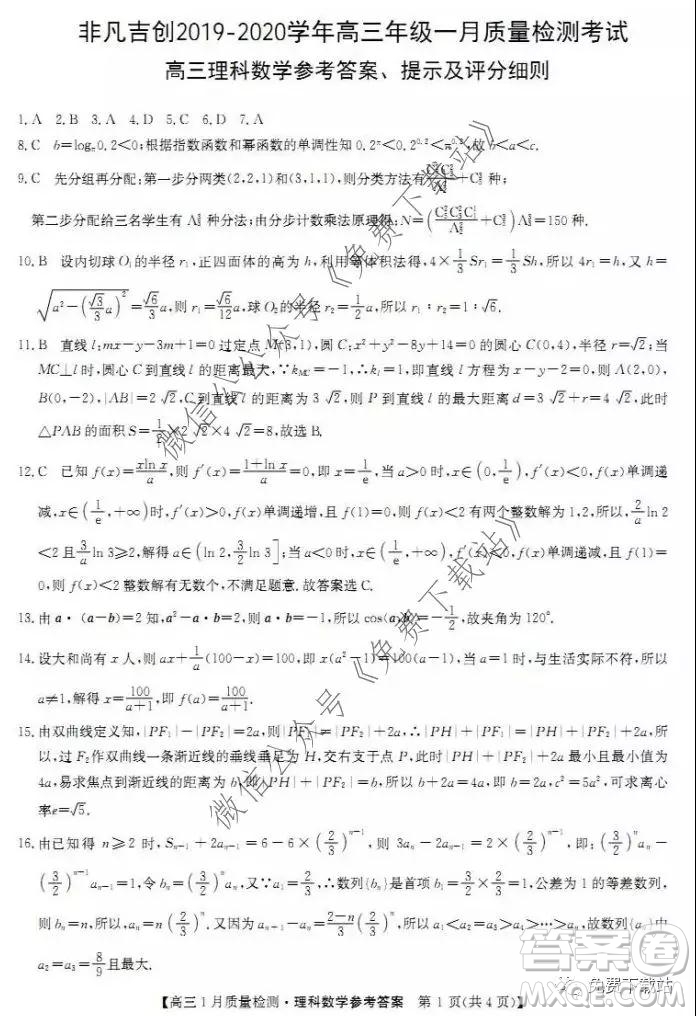 非凡吉创2019-2020学年高三年级一月质量检测考试
高三理科数学参考答案、提示及评分细则
1.A 2.B 3.A 4.D 5.C 6.D 7.A
8.C b=logπ0.2<0;根据指数函数和幂函数的单调性知 0.2^π<0.2^0.2<π^0.2,故 b<a<c.
9.C 先分组再分配;第一步分两类(2,2,1)和(3,1,1),则分类方法有 +C 种;
第二步分配给三名学生有 A 种分法;由分步计数乘法原理得:N= =150 种.
10.B 设内切球 O₁的半径 r₁,正四面体的高为 h,利用等体积法得,4×1/3 Sr₁=1/3 Sh,所以 4r₁=h,又 h=
√(a²-(√3/3 a)²)=√6/3 a,则 r₁=√6/12 a,球 O₂的半径 r₂=1/2 a,所以 r₁:r₂=1:√6.
11.B 直线 l:mx-y-3m+1=0 过定点 M(3,1),圆 C:x²+y²-8y+14=0 的圆心 C(0,4),半径 r=√2;当
MC⊥l 时,圆心 C 到直线 l 的距离最大,∵k_MC=-1,∴k_l=1,即直线 l 方程为 x-y-2=0,则 A(2,0),
B(0,-2),|AB|=2√2,C 到直线 l 的距离为 3√2,则 P 到直线 l 的最大距离 d=3√2+r=4√2,此时
△PAB 的面积 S=1/2×2√2×4√2=8,故选 B.
12.C 已知 f(x)=xln x/a,则 f′(x)=(1+ln x)/a=0,即 x=1/e,当 a>0 时,x∈(0,1/e),f(x)单调递
减,x∈(1/e,+∞)时,f′(x)>0,f(x)单调递增,且 f(1)=0,则 f(x)<2 有两个整数解为 1,2,所以,2/a ln 2
<2 且 3/a ln 3≥2,解得 a∈(ln 2,3/2 ln 3];当 a<0 时,x∈(1/e,+∞),f′(x)<0,f(x)单调递减,且 f(1)=
0,则 f(x)<2 整数解有无数个,不满足题意.故答案选 C.
13.由 a·(a-b)=2 知,a²-a·b=2,则 a·b=-1,所以 cos⟨a,b⟩=-1/2,故夹角为 120°.
14.设大和尚有 x 人,则 ax+1/a(100-x)=100,即 x(a²-1)=100(a-1),当 a=1 时,与生活实际不符,所以
a≠1,解得 x=100/(a+1),即 f(a)=100/(a+1).
15.由双曲线定义知,|PF₁|-|PF₂|=2a,则|PF₁|=|PF₂|+2a,∴|PH|+|PF₁|=|PH|+|PF₂|+2a,所
以,过 F₂作双曲线一条渐近线的垂线垂足为 H,交右支于点 P,此时|PH|+|PF₂|+2a 最小且最小值为
4a,易求焦点到渐近线的距离为 b,即|PH|+|PF₂|=b,所以 b+2a=4a,即 b=2a,c²=5a²,可求离心
率e=√5.
16.由已知得 n≥2 时,Sₙ₋₁+2aₙ₋₁=6-6×(2/3)ⁿ⁻¹,则 3aₙ-2aₙ₋₁=2×(2/3)ⁿ⁻¹,即:(3/2)ⁿaₙ-
(3/2)ⁿ⁻¹aₙ₋₁=1,令 bₙ=(3/2)ⁿaₙ,又∵a₁=2/3,∴数列{bₙ}是首项为 3/2×2/3=1,公差为 1 的等差数列,
则 bₙ=n,所以,aₙ=n(2/3)ⁿ.又因为 aₙ₊₁-aₙ=(2-n)/3(2/3)ⁿ,所以 a₁<a₂=a₃>a₄>…>aₙ,故数列{aₙ}中
a₂=a₃=8/9 且最大.
【高三 1 月质量检测·理科数学参考答案 第 1 页(共 4 页)】
微信公众号《免费下载站》
微信公众号《免费下载站》
免费下载站